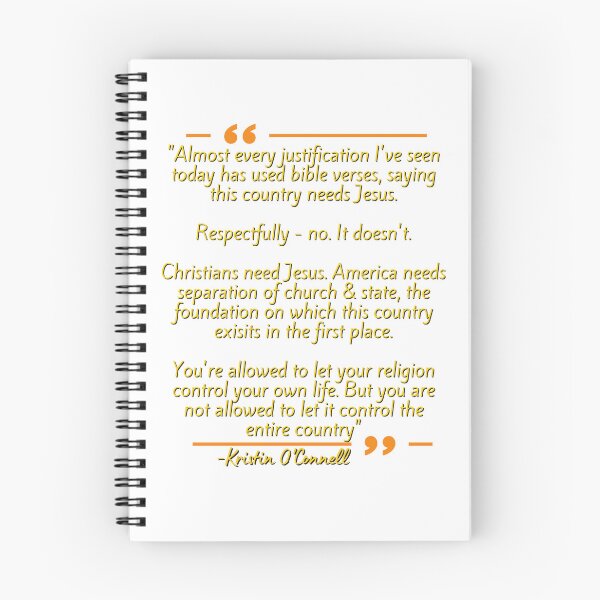 "Almost every justification I've seen
today has used bible verses, saying
this country needs Jesus.
Respectfully - no. It doesn't.
Christians need Jesus. America needs
separation of church & state, the
foundation on which this country
exisits in the first place.
You're allowed to let your religion
control your own life. But you are
not allowed to let it control the
entire country"
-Kristin O'Connell